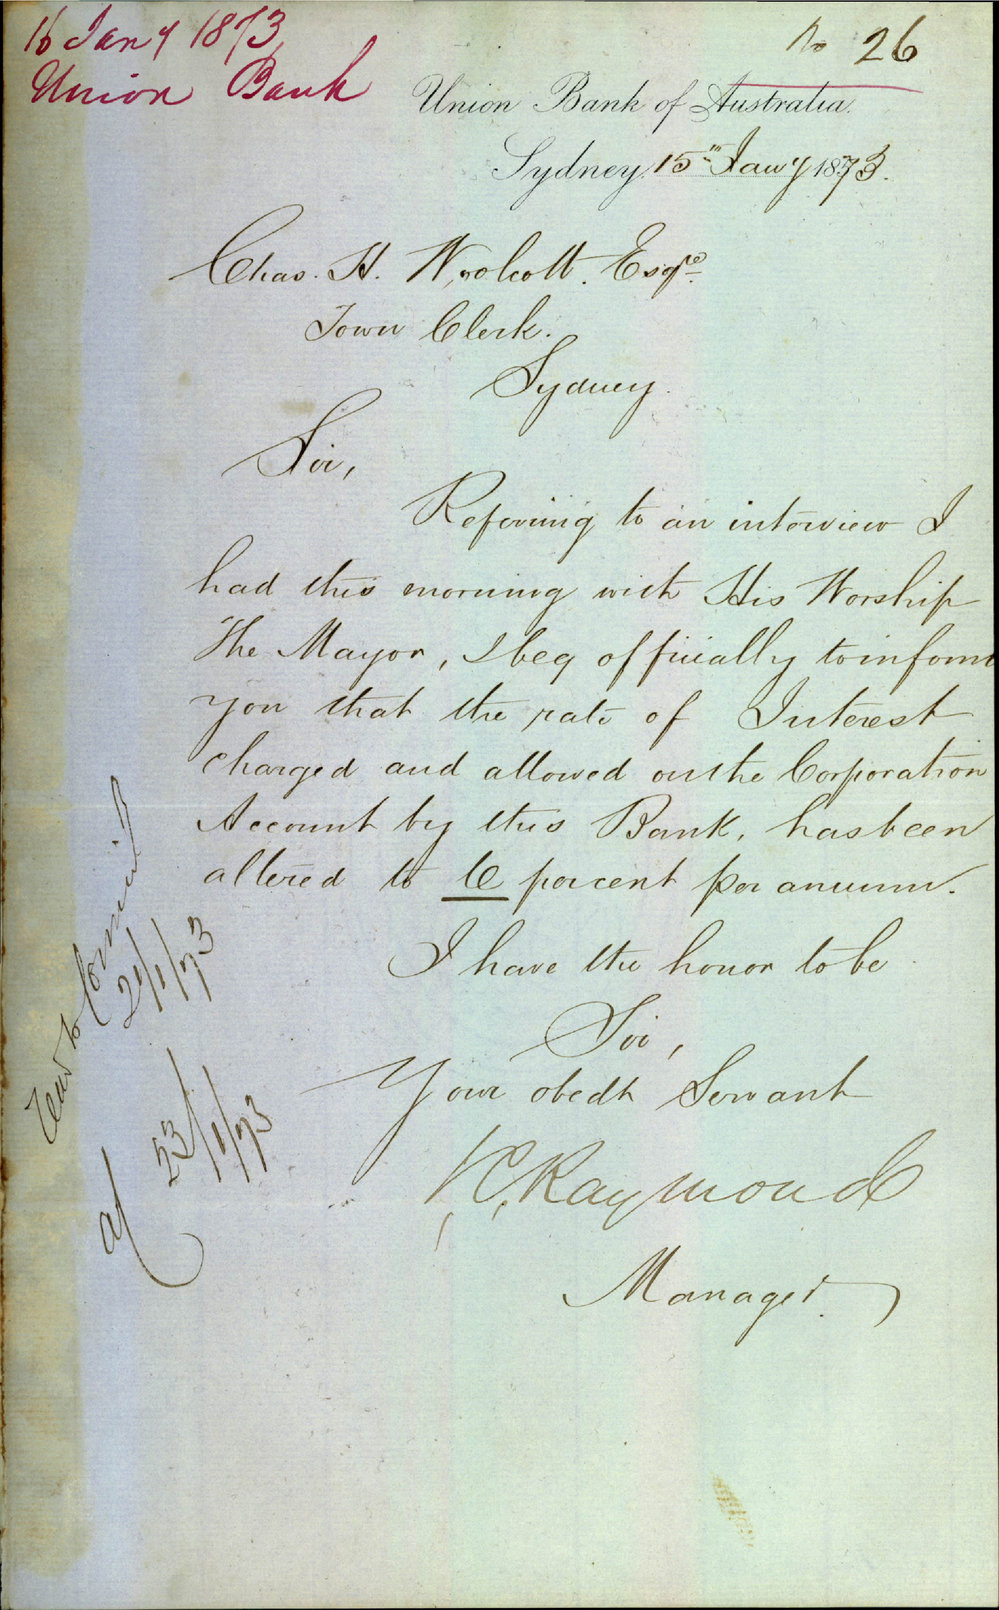 16 Jany 1873
Union Bank
No 26
Union Bank of Australia.
Sydney, 15th Jany 1873.
Chas. H. Woolcott. Esqre.
Town Clerk.
Sydney.
Sir,
Referring to an interview I
had this morning with His Worship
The Mayor, I beg officially to inform
you that the rate of Interest
charged and allowed on the Corporation
Account by this Bank, has been
altered to 6 percent per annum.
I have the honor to be
Sir,
Your obedt Servant
Raymond
Manager.
21/1/73
23/1/73